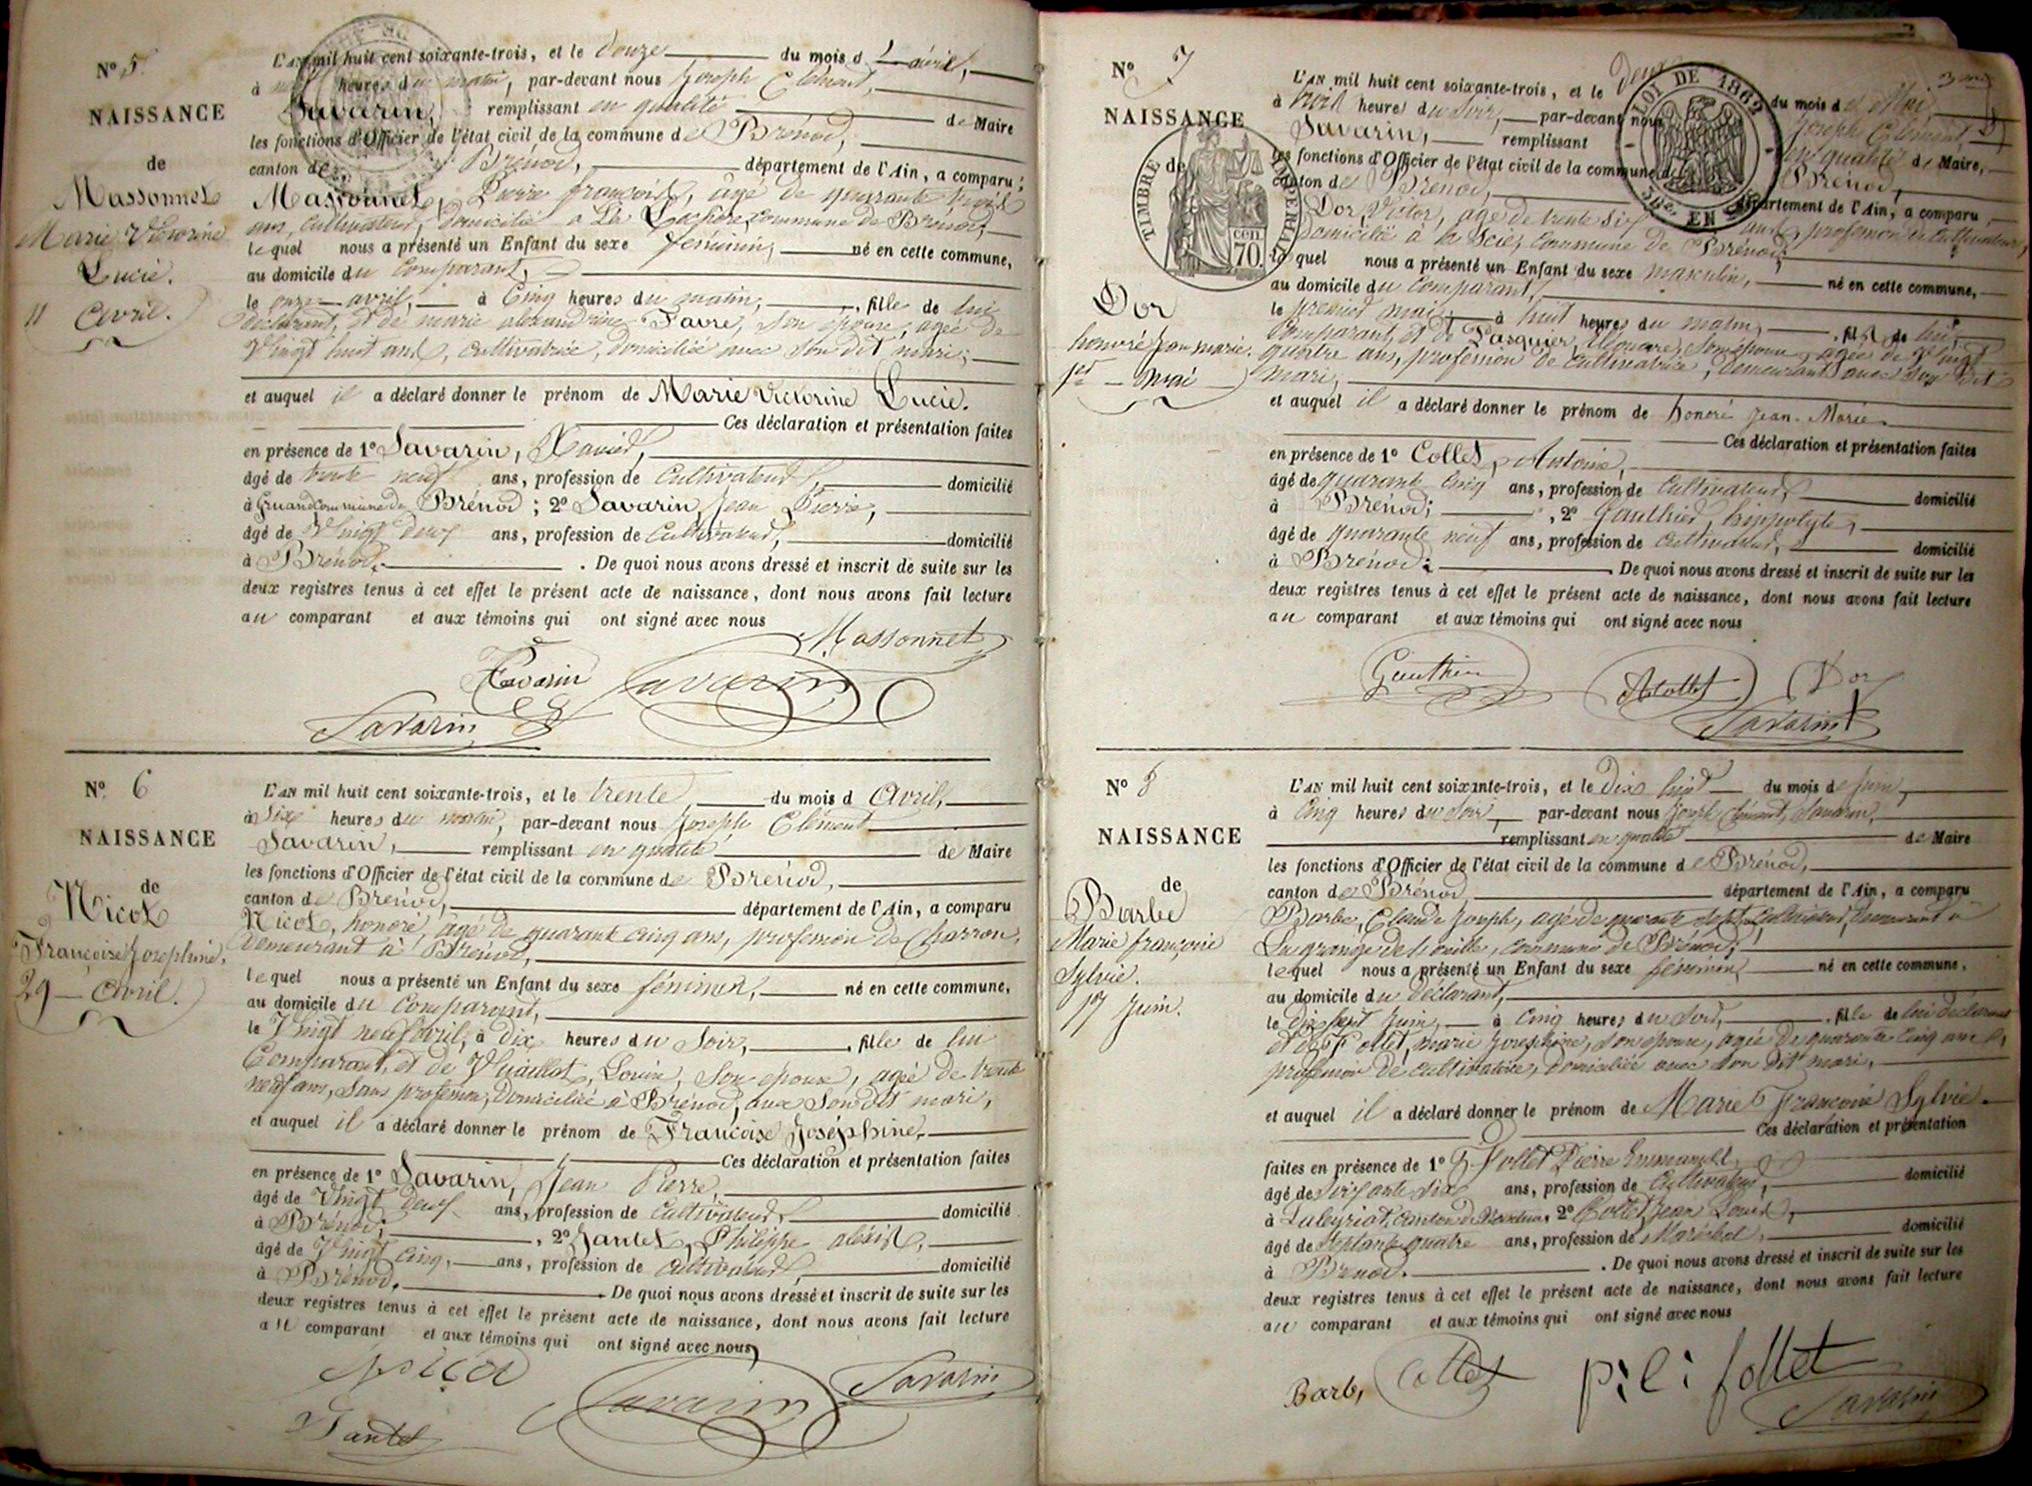 N° 5.
NAISSANCE
de
Massonnet
Marie Victorine
Lucie.
11 Avril.
L'AN mil huit cent soixante-trois, et le douze du mois d'avril,
à heures du matin, par-devant nous Joseph Clément,
Savarin, remplissant en qualité de Maire
les fonctions d'Officier de l'état civil de la commune de Brénod,
canton de Brénod, département de l'Ain, a comparu :
Massonnet, Pierre françois, agé de quarante
ans, cultivateur, domicilié à La commune de Brénod,
lequel nous a présenté un Enfant du sexe féminin, né en cette commune,
au domicile du comparant,
le onze avril, à Cinq heures du matin, fille de lui
déclarant, et de marie alexandrine Favre, son épouse, agée de
Vingt huit ans, cultivatrice, domiciliée avec son dit mari ;
et auquel il a déclaré donner le prénom de Marie Victorine Lucie.
Ces déclaration et présentation faites
en présence de 1° Savarin, Xavier,
âgé de trente neuf ans, profession de Cultivateur, domicilié
à Gruand commune de Brénod ; 2° Savarin, Jean Pierre,
âgé de Vingt neuf ans, profession de Cultivateur, domicilié
à Brénod. De quoi nous avons dressé et inscrit de suite sur les
deux registres tenus à cet effet le présent acte de naissance, dont nous avons fait lecture
au comparant et aux témoins qui ont signé avec nous
Massonnet
Savarin Savarin
Savarin
N° 6
NAISSANCE
de
Nicot
Françoise Josephine.
29 Avril.
L'AN mil huit cent soixante-trois, et le trente du mois d Avril,
à Six heures du matin, par-devant nous Joseph Clément
Savarin, remplissant en qualité de Maire
les fonctions d'Officier de l'état civil de la commune de Brénod,
canton de Brénod, département de l'Ain, a comparu
Nicot, honoré, agé de quarante cinq ans, profession de Charron,
demeurant à Brénod,
lequel nous a présenté un Enfant du sexe féminin, né en cette commune,
au domicile du Comparant,
le Vingt neuf avril, à dix heures du Soir, fille de lui
Comparant, et de Vuaillat, Louise, son epouse, agée de trente
neuf ans, sans profession, domiciliée à Brénod, avec son dit mari,
et auquel il a déclaré donner le prénom de Francoise Joséphine,
Ces déclaration et présentation faites
en présence de 1° Savarin, Jean Pierre,
âgé de Vingt neuf ans, profession de Cultivateur, domicilié
à Brénod ; 2° Jantet, Philippe aléxis,
âgé de Vingt cinq, ans, profession de cultivateur, domicilié
à Brénod. De quoi nous avons dressé et inscrit de suite sur les
deux registres tenus à cet effet le présent acte de naissance, dont nous avons fait lecture
au comparant et aux témoins qui ont signé avec nous
Nicod
Savarin Savarin
Jantet
N° 7
NAISSANCE
de
TIMBRE IMPERIAL
70. cen
Dor
honoré Jean marie.
1er mai
LOI DE 1862
EN SUS
L'AN mil huit cent soixante-trois, et le deux du mois de Mai
à trois heures du Soir, par-devant nous Joseph Clément,
Savarin, remplissant en qualité de Maire,
les fonctions d'Officier de l'état civil de la commune de Brénod,
canton de Brénod, département de l'Ain, a comparu
Dor, Victor, agé de trente six ans, profession de cultivateur,
domicilié à la Scie, commune de Brénod,
lequel nous a présenté un Enfant du sexe masculin, né en cette commune,
au domicile du Comparant,
le premier mai, à huit heures du matin, fils de lui,
Comparant, et de Pasquier, son épouse, agée de Vingt
quatre ans, profession de cultivatrice, demeurant avec son dit
mari,
et auquel il a déclaré donner le prénom de honoré Jean-Marie.
Ces déclaration et présentation faites
en présence de 1° Collet, Antoine,
âgé de quarante cinq ans, profession de Cultivateur, domicilié
à Brénod ; , 2° Gauthier, hippolyte,
âgé de quarante neuf ans, profession de cultivateur, domicilié
à Brénod ; De quoi nous avons dressé et inscrit de suite sur les
deux registres tenus à cet effet le présent acte de naissance, dont nous avons fait lecture
au comparant et aux témoins qui ont signé avec nous
Gauthier A Collet Dor
Savarin
N° 8
NAISSANCE
de
Barbe
Marie françoise
Sylvie.
17 Juin.
L'AN mil huit cent soixante-trois, et le Dix huit du mois de Juin,
à Cinq heures du Soir, par-devant nous Joseph Clément, Savarin,
remplissant en qualité de Maire
les fonctions d'Officier de l'état civil de la commune de Brénod,
canton de Brénod département de l'Ain, a comparu
Barbe, Claude Joseph, agé de quarante sept, cultivateur, demeurant à
La grange commune de Brénod ;
lequel nous a présenté un Enfant du sexe féminin, né en cette commune,
au domicile du Déclarant,
le dix sept Juin, à Cinq heures du Soir, fille de lui déclarant
et de Follet, marie Josephine, son epouse, agée de quarante cinq ans,
profession de cultivatrice, domiciliée avec son dit mari,
et auquel il a déclaré donner le prénom de Marie Francoise Sylvie.
Ces déclaration et présentation
faites en présence de 1° Follet Pierre Emmanuel,
âgé de soixante six ans, profession de Cultivateur, domicilié
à Laleyriat, canton de Nantua, 2° Collet, Jean Louis,
âgé de Septante quatre ans, profession de Maréchal, domicilié
à Brénod. De quoi nous avons dressé et inscrit de suite sur les
deux registres tenus à cet effet le présent acte de naissance, dont nous avons fait lecture
au comparant et aux témoins qui ont signé avec nous
Barbe Collet p: e: follet
Savarin